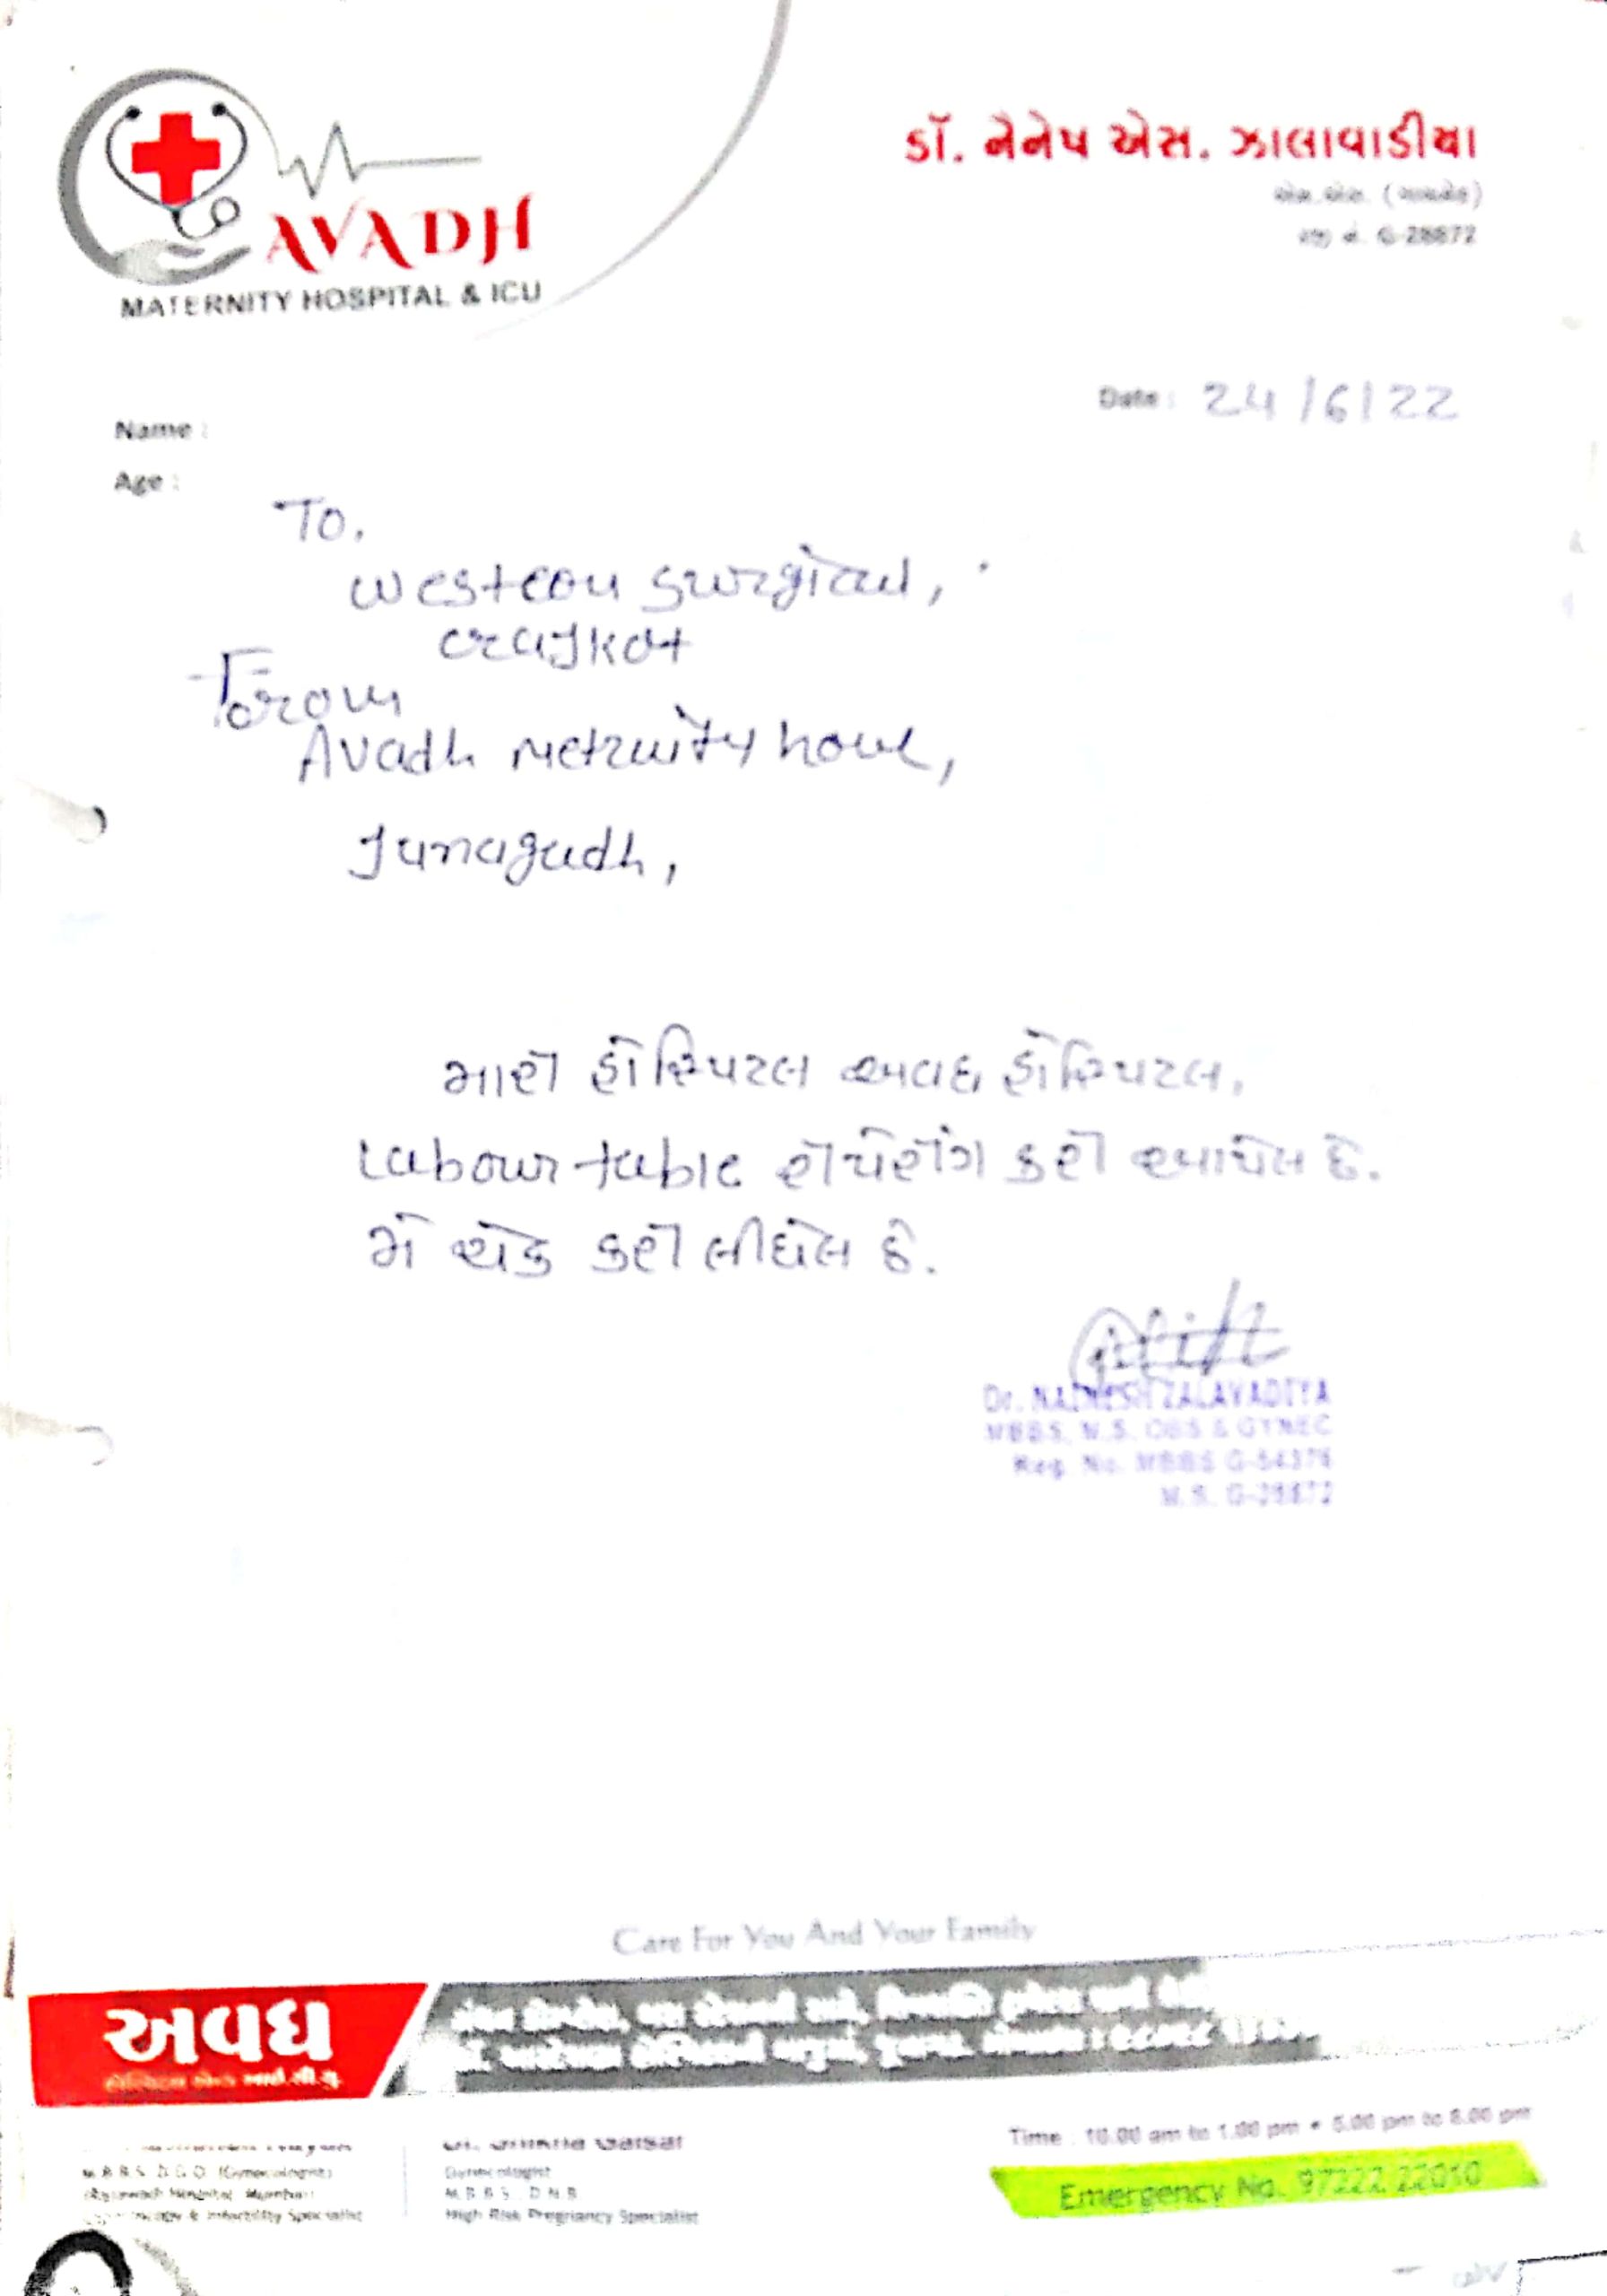 AVADH
MATERNITY HOSPITAL & ICU
ડૉ. નૈનેષ એસ. ઝાલાવાડીયા
એમ.એસ. (ગાયનેક)
રજી નં. G-28872
Date : 24/6/22
Name :
Age :
To,
westeon surgical,
rajkot
From
Avadh meternity home,
Junagadh,
મારી હોસ્પિટલ અવધ હોસ્પિટલ,
Labour table રીપેરીંગ કરી આપેલ છે.
મેં ચેક કરી લીધેલ છે.
Dr. NAINESH ZALAVADIYA
MBBS, M.S. OBS & GYNEC
Reg. No. MBBS G-54376
M.S. G-28872
Care For You And Your Family
અવધ
હોસ્પિટલ એન્ડ આઈ.સી.યુ.
M.B.B.S. D.G.O. (Gynecologist)
Hospital, Mumbai
& Infertility Specialist
Gynecologist
M.B.B.S., D.N.B
High Risk Pregnancy Specialist
Time : 10.00 am to 1.00 pm • 5.00 pm to 8.00 pm
Emergency No. 97222 22010